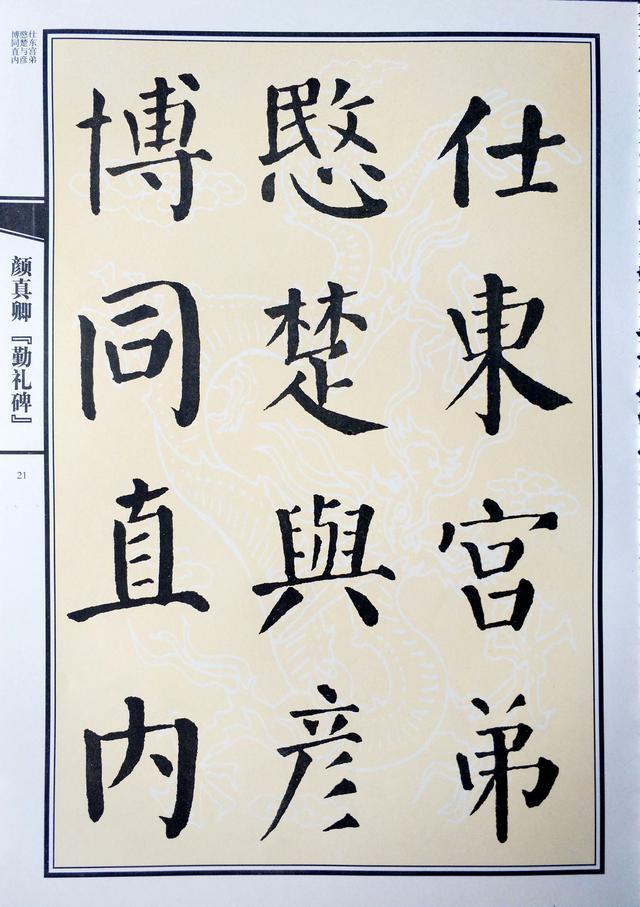 仕東宮弟
愍楚與彦
博同直内
仕东宫弟
愍楚与彦
博同直内
颜真卿『勤礼碑』
21